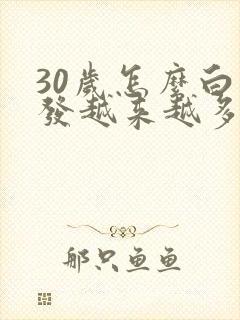 30歲怎麼白
發越来越多
那只鱼鱼